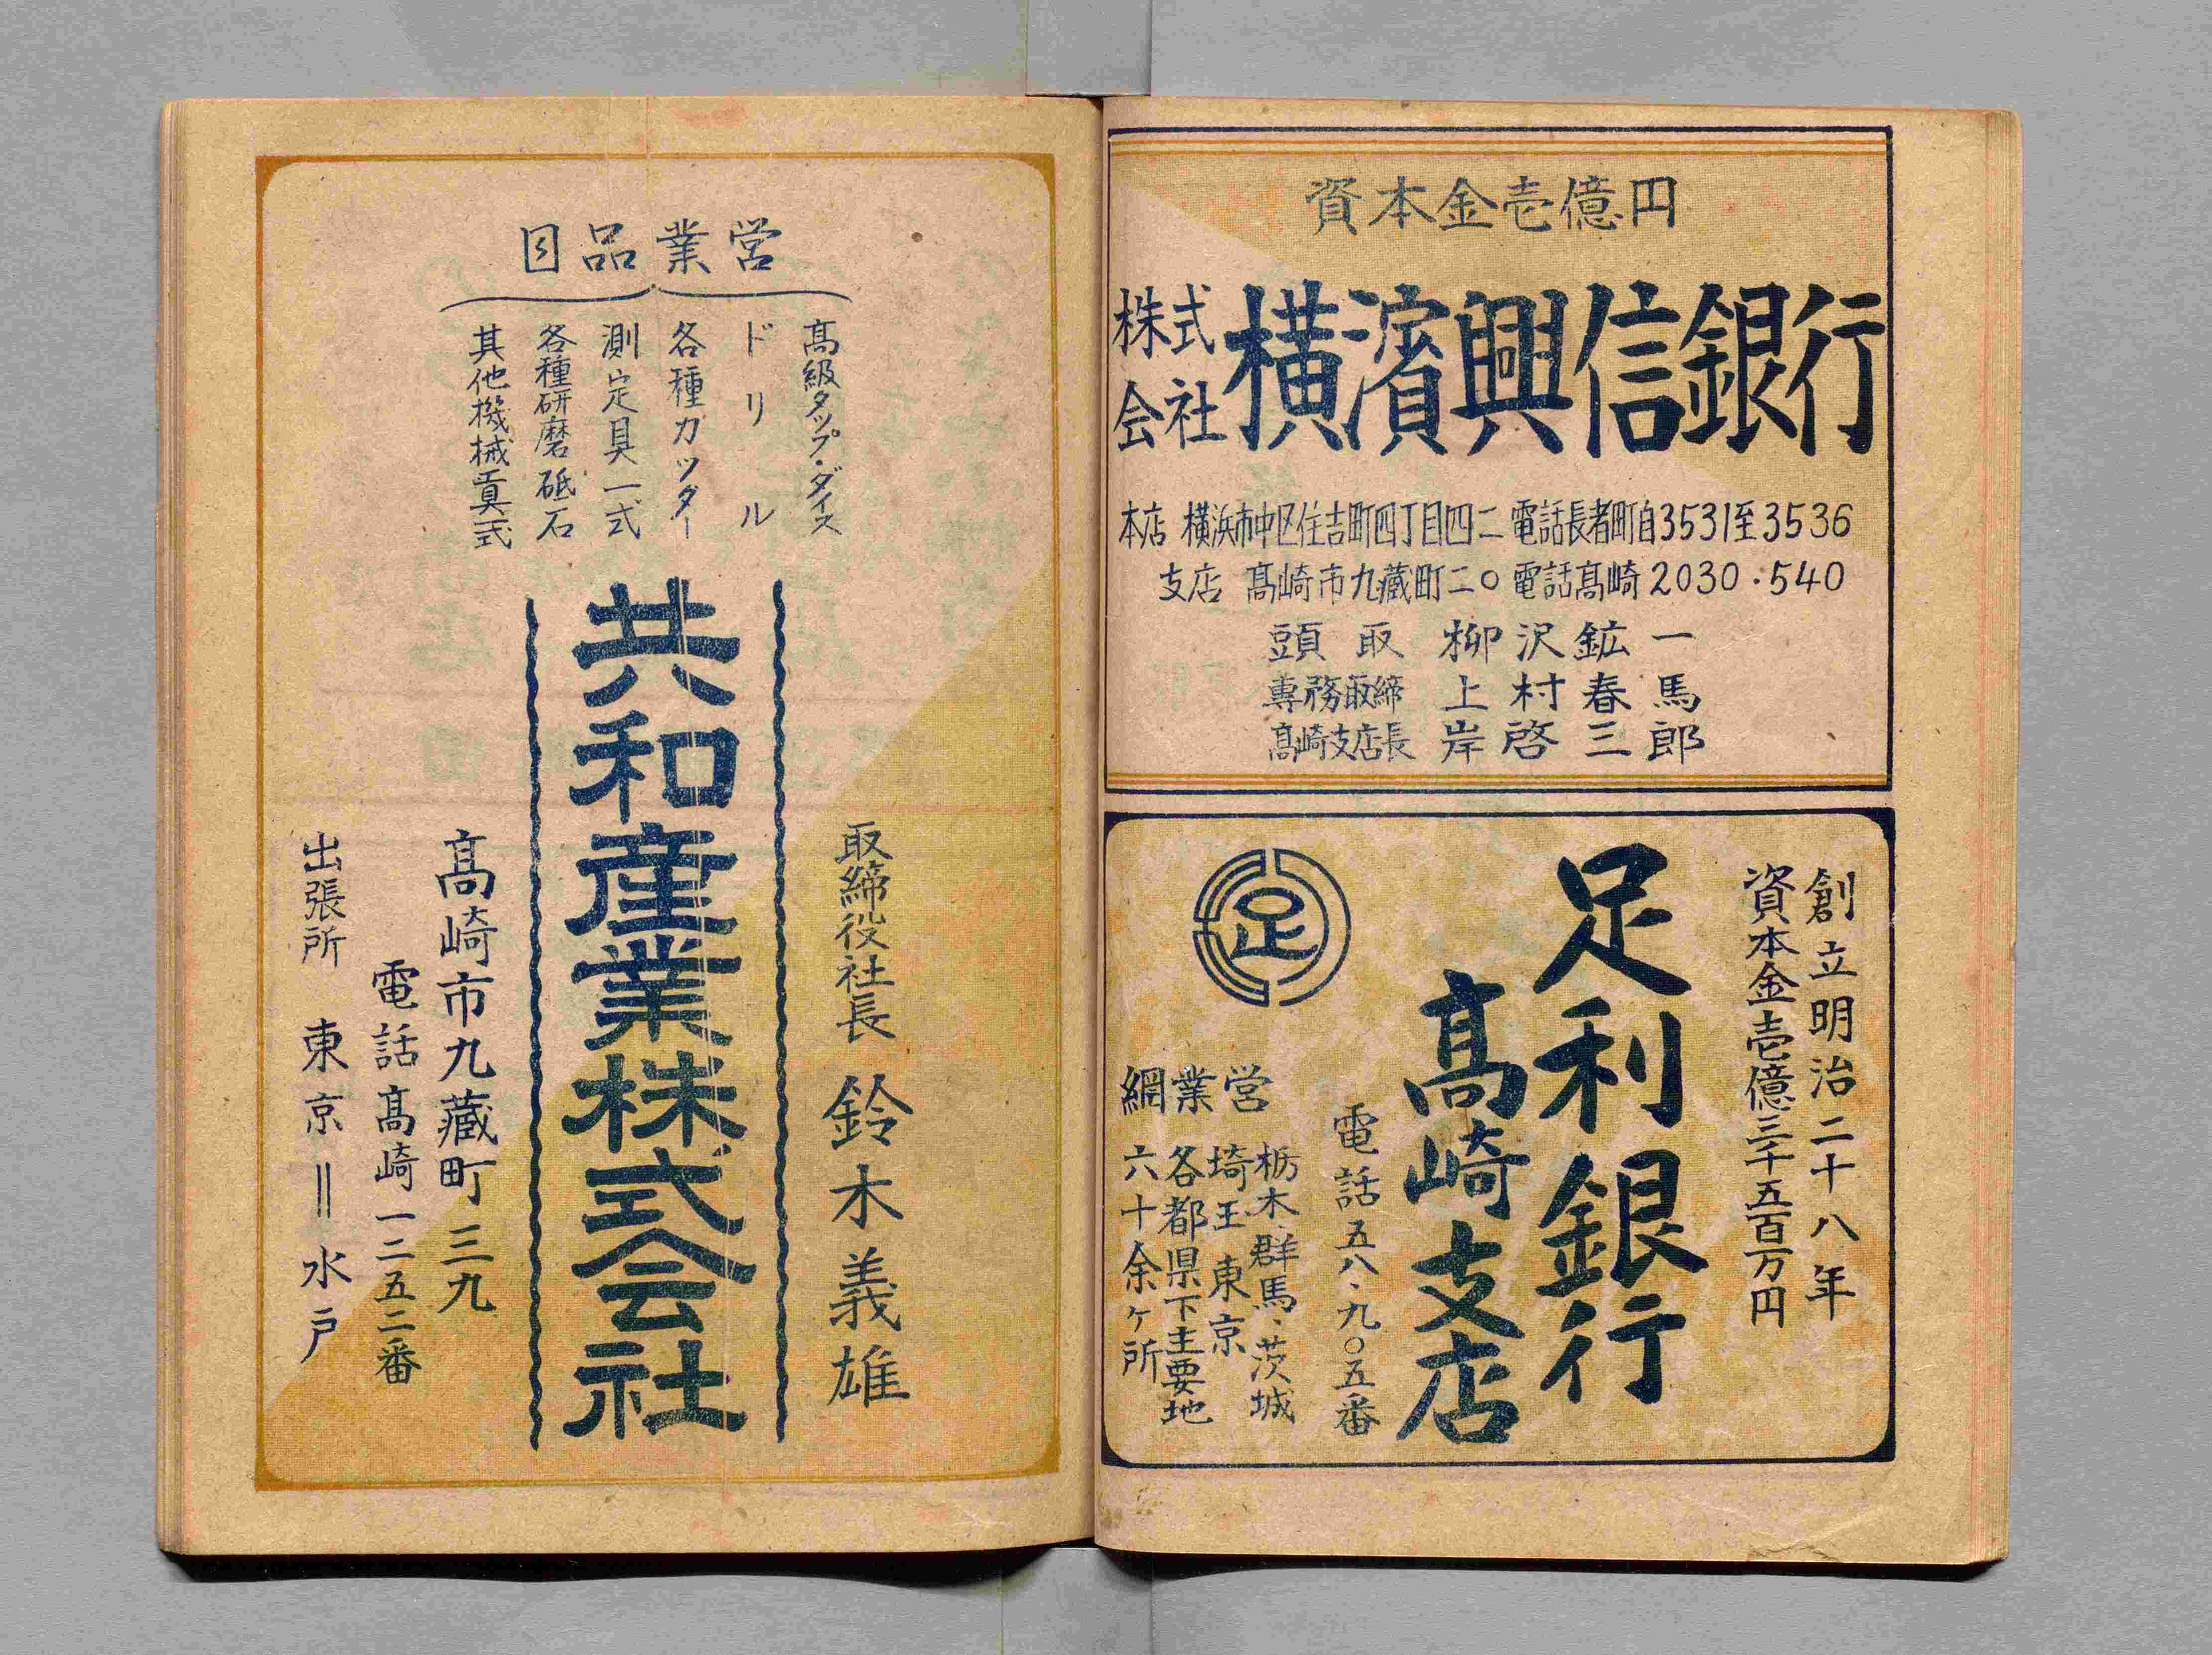 資本金壱億円
株式会社横濱興信銀行
本店 横浜市中区住吉町四丁目四二 電話長者町自3531至3536
支店 髙崎市九蔵町二〇 電話髙崎2030・540
頭取 柳沢鉱一
専務取締 上村春馬
髙崎支店長 岸啓三郎
創立明治二十八年
資本金壱億三千五百万円
足利銀行
髙崎支店
電話五八・九〇五番
足
営業網
栃木・群馬・茨城
埼玉 東京
各都県下主要地
六十余ヶ所
営業品目
髙級タップ・ダイス
ドリル
各種カッター
測定具一式
各種研磨砥石
其他機械工具一式
取締役社長 鈴木義雄
共和産業株式会社
髙崎市九蔵町三九
電話髙崎一二五二番
出張所 東京＝水戸